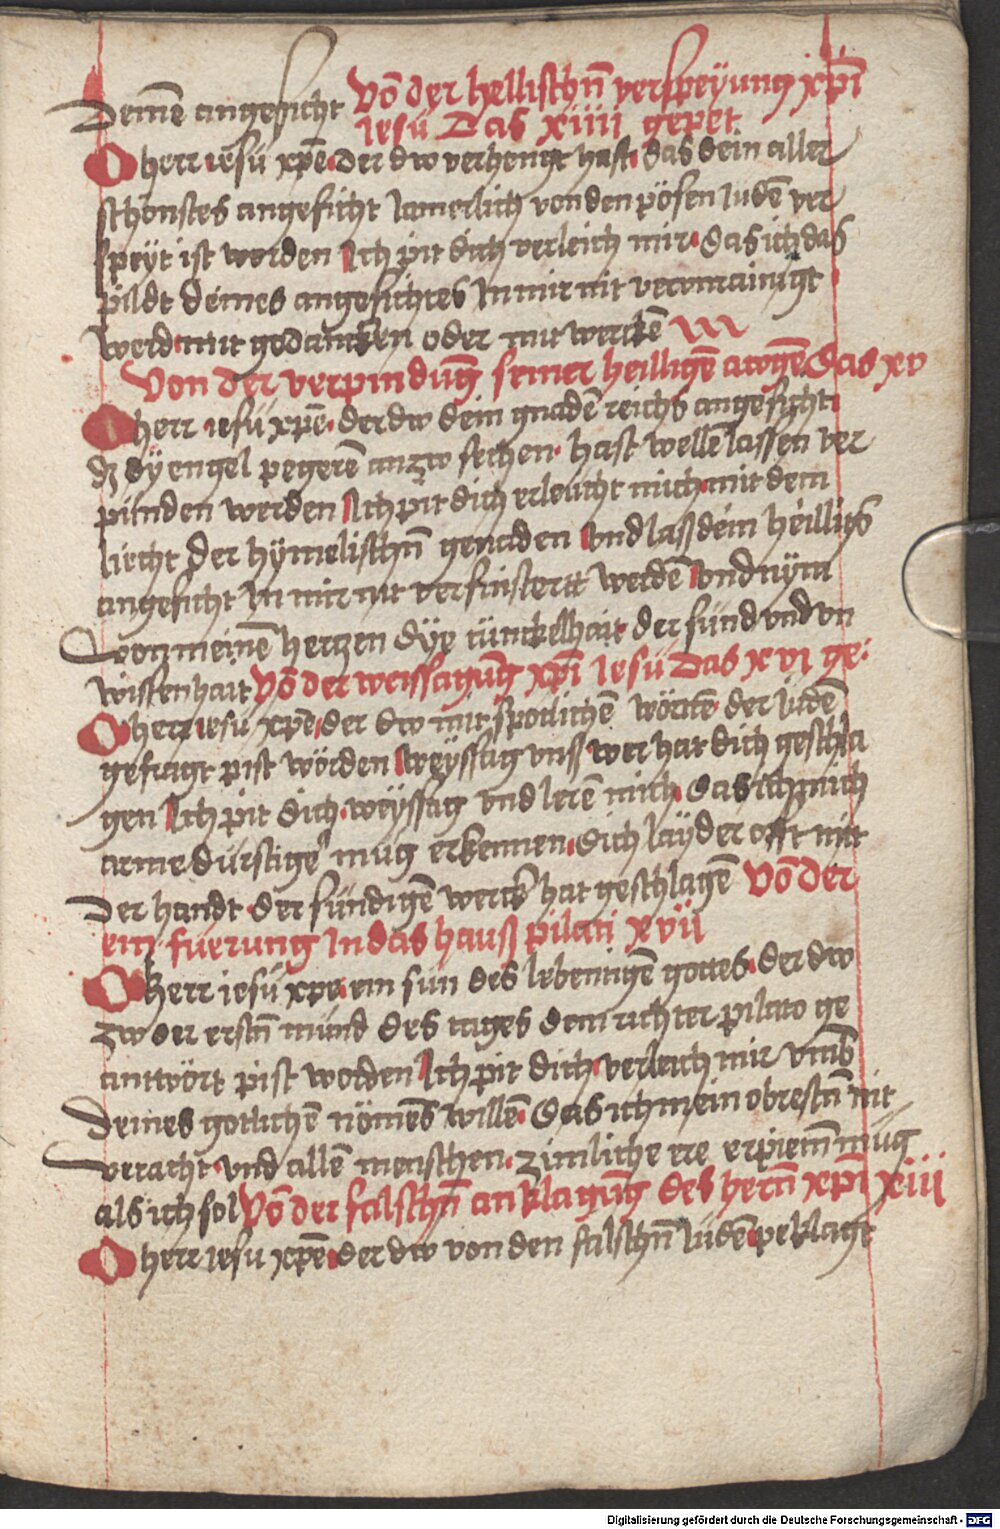 Deinē angesicht Vō der hellischn̄ verspeyung xp̄i
iesu Das xiiii gepet
O herr iesu xp̄e der dw verhengt hast das dein aller
schonstes angesicht Iamerlich von den pösen Iudē ver
speyt ist worden Ich pit dich verleich mir das ich das
pildt deines angesichtes In mir nit vermainigt
werd mit gedancken oder mit werckē
Von der verpindūg seiner heilligē awgē das xv
O herr iesu xp̄e der dw dein gnadē reichs angesicht
dz dy engel pegerē anzw sechen hast wellē lassen ver
pinden werden Ich pit dich erleucht mich mit dem
liecht der hymelischn̄ genaden vnd lass dein heilligs
angesicht In mir nit verfinstertt werdē vnd nym
von meinē hertzen dye tunckelhait der sund vnd vn
wissenhait Vō der weissagūg xp̄i Iesu Das xvi ge:
O herr iesu xp̄e der dw mit spotlichē wortē der Iudē
gefragt pist worden weyssag vnss wer hat dich geschla
gen Ich pit dich weyssag vnd lerē mich das ich mich
arme durstige mug erkennen dich layder offt mit
Der handt der sundigē werck hat geschlagē Vō der
ein fuerung In das hauß pilati xvii
O herr iesu xp̄e ein sun des lebentigē gottes der dw
zw der erstn̄ mund des tages dem richter pilato ge
antwort pist worden Ich pit dich verleich mir vmb
deines gotlichē nomēs willē das ich mein obrestn̄ nit
veracht vnd allē menschen zimliche ere erpietn̄ mug
als ich sol Vō der falschn̄ anklagūg des hern̄ xp̄i xviii
O herr iesu xp̄e der dw von den falschn̄ Iudē peklagt
Digitalisierung gefördert durch die Deutsche Forschungsgemeinschaft - DFG